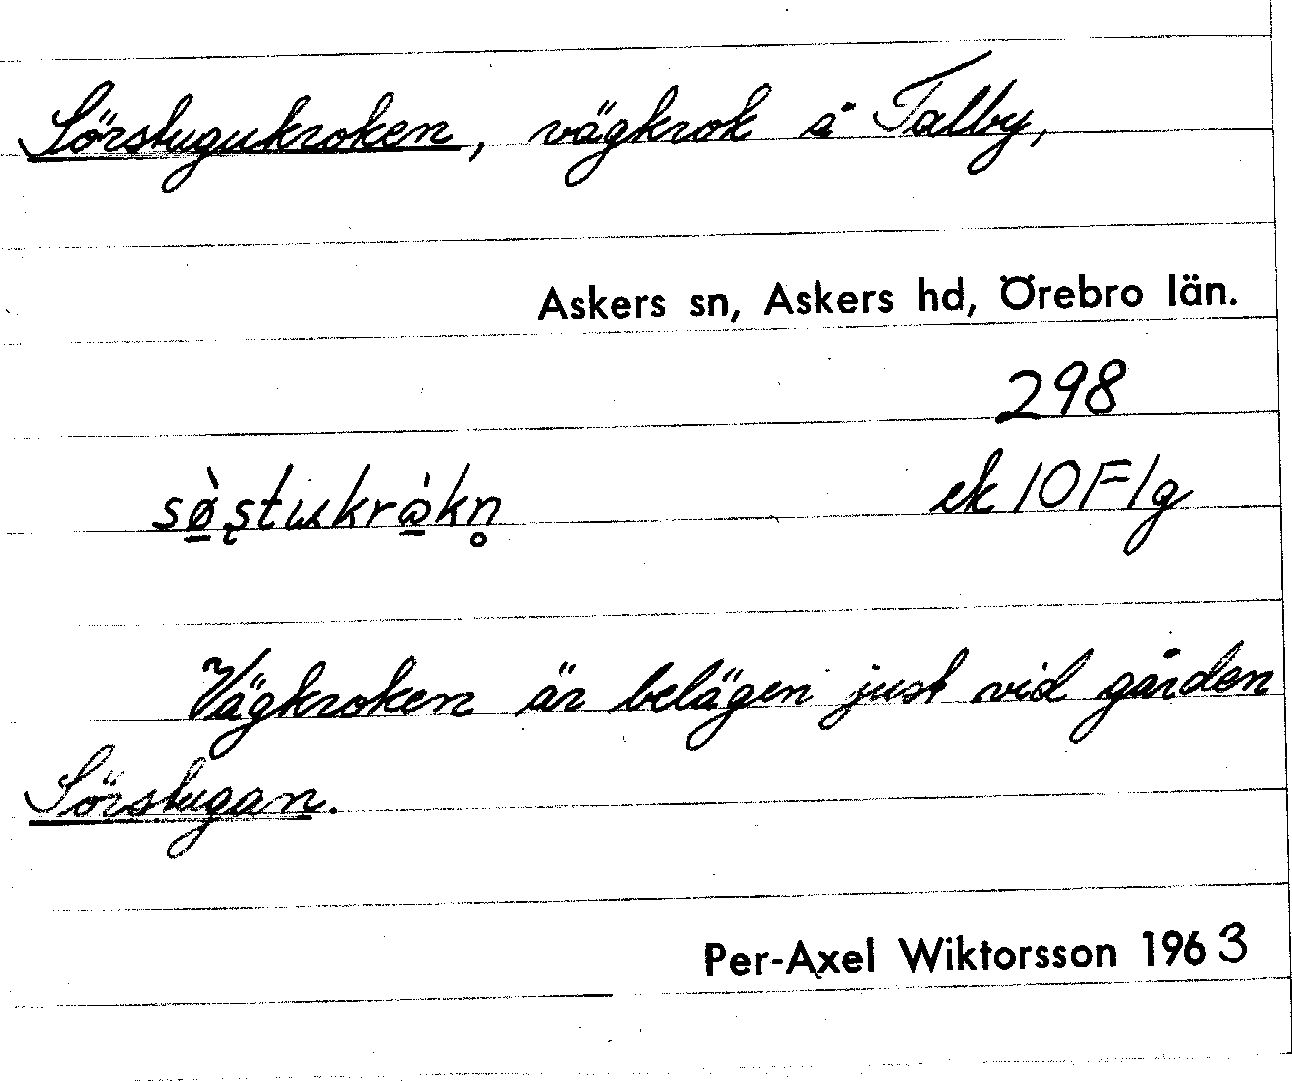 Sörstugukroken, vägkrok å Talby,
Askers sn, Askers hd, Örebro län.
298
sø̀ʂtukrὼkn̥ ek 10F1g
Vägkroken är belägen just vid gården
Sörstugan.
Per-Axel Wiktorsson 1963